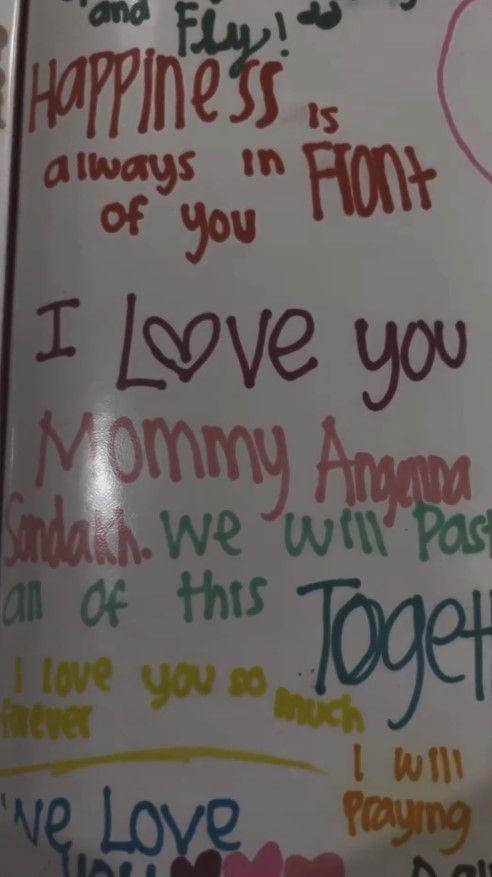 and Fly!
HAPPINESS is
always in Front
of you
I Love you
Mommy Angenna
Sondakh. We will Past
all of this Toget
I love you so much
forever
I will
Praying
We Love
you